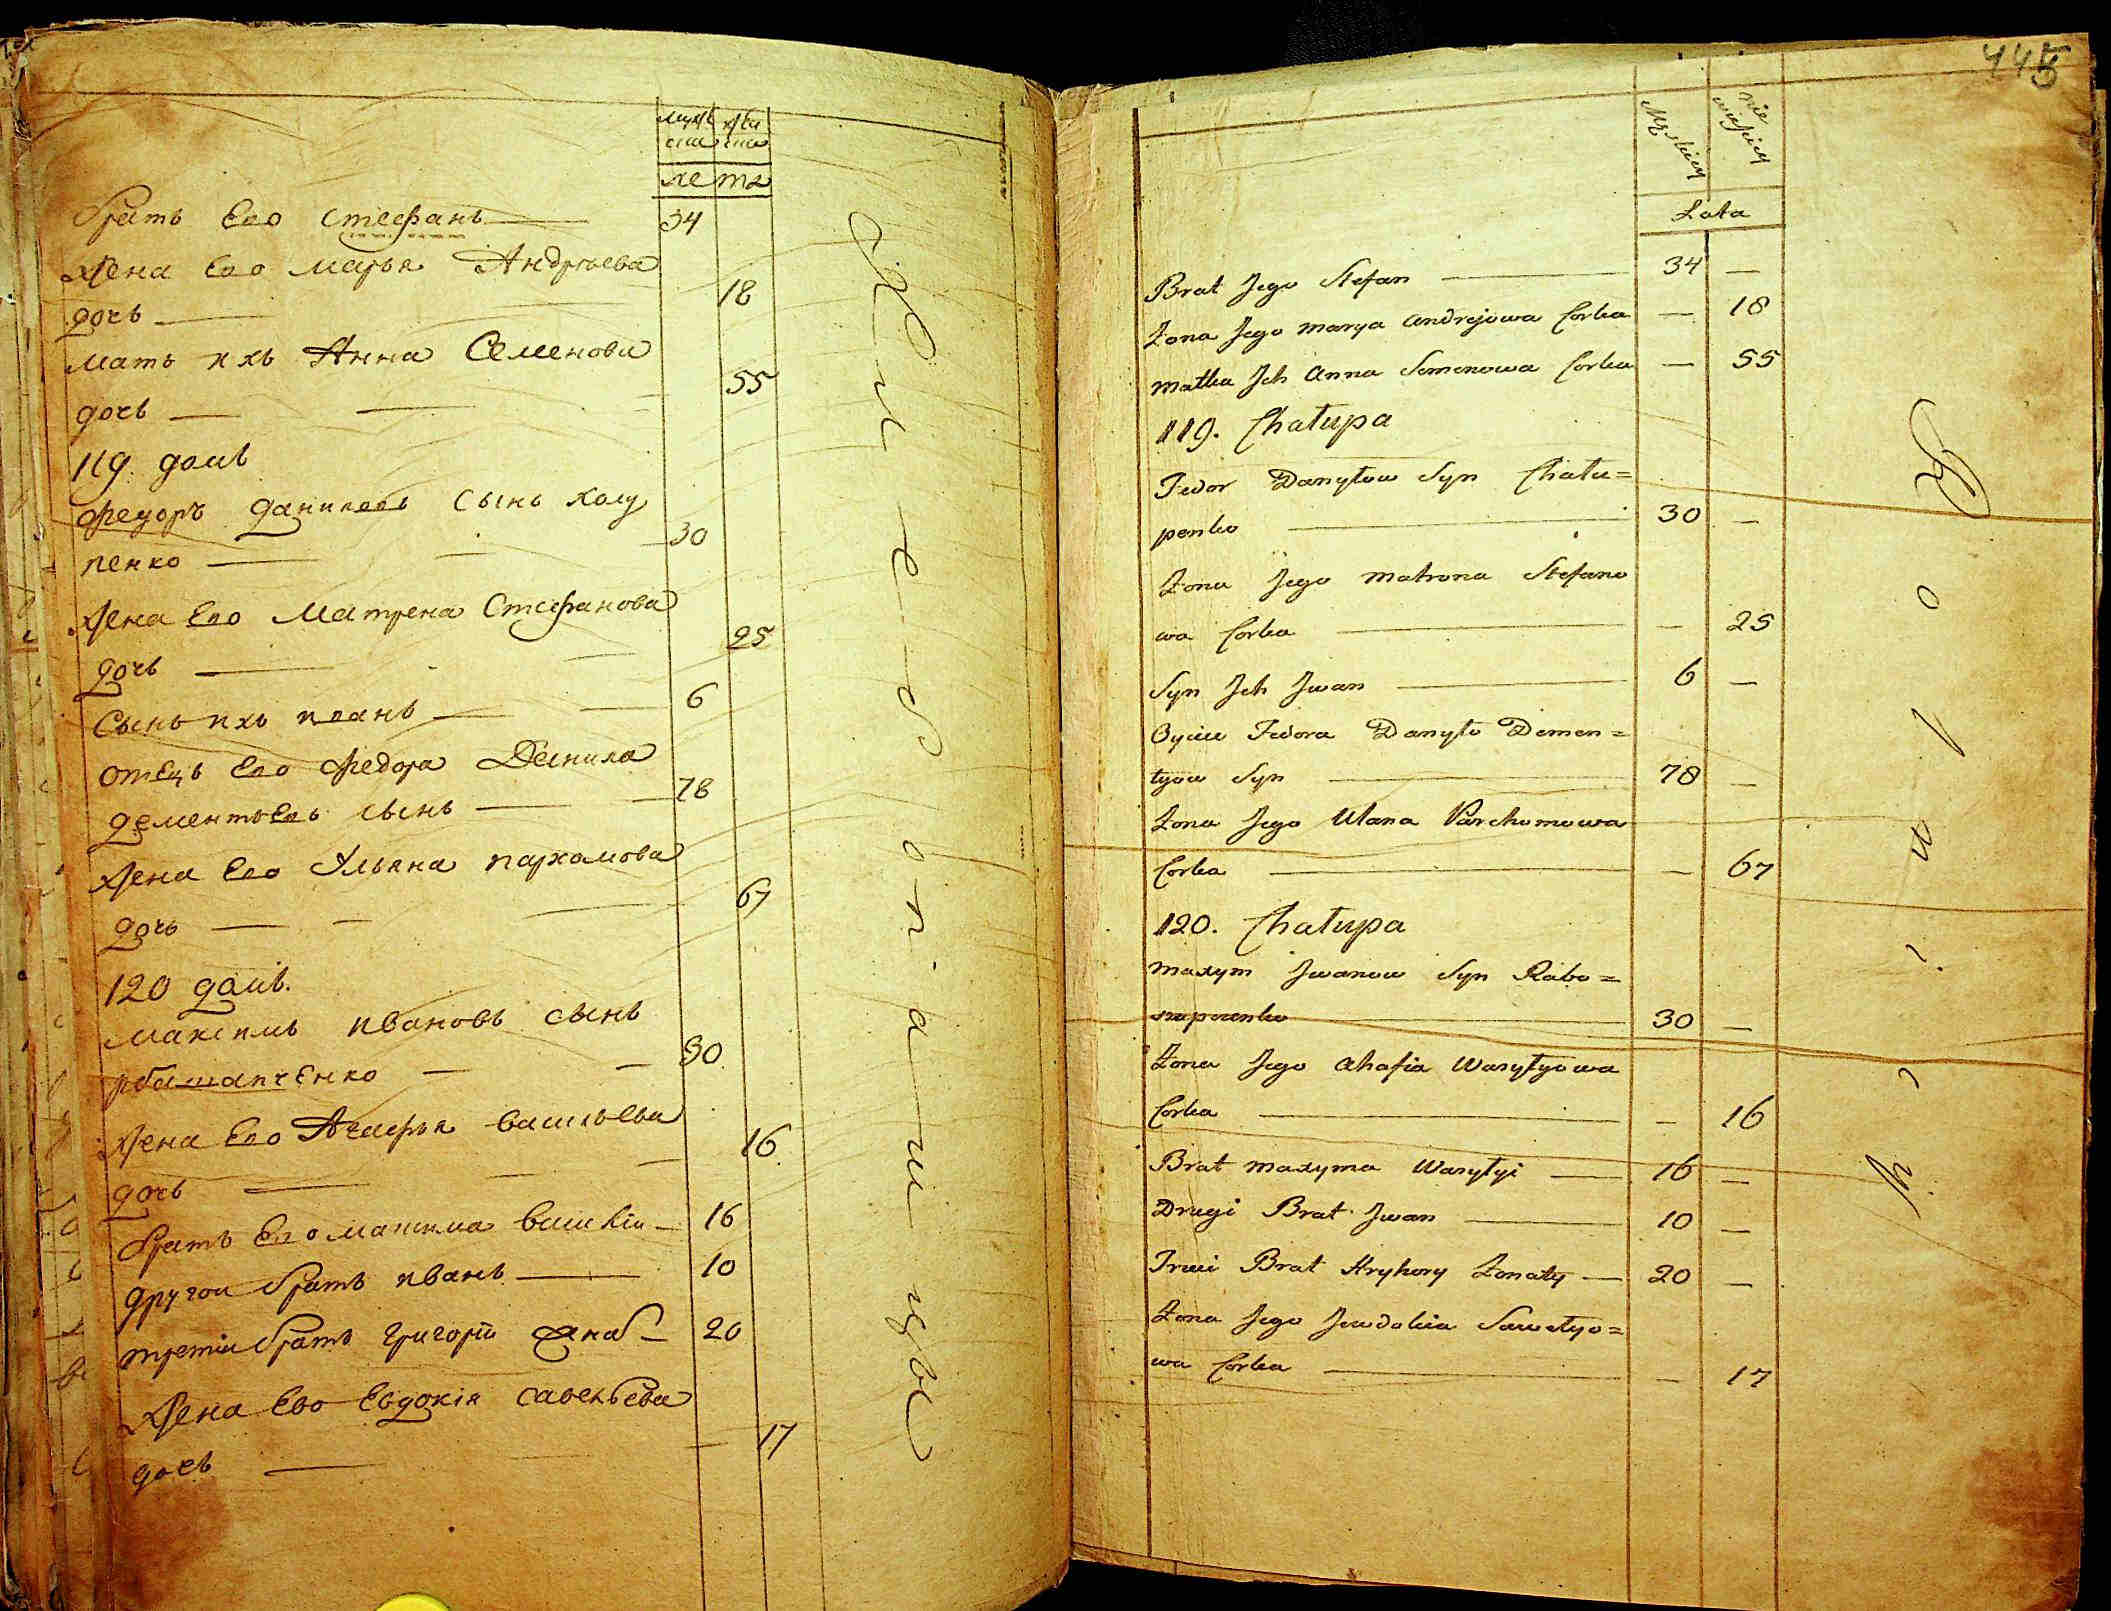 муж ска
жен ска
лета
братъ Его стефанъ 34
жена Его марья Андреева
дочь 18
мать ихъ Анна Семенова
дочь 55
119. домъ
федоръ даниловъ сынъ халу
пенко 30
жена Его Матрена Стефанова
дочь 25
Сынъ ихъ иванъ 6
отецъ Его федора Данила
дементьевъ сынъ 78
жена Его Ульяна пархомова
дочь 67
120 домъ.
максимъ ивановъ сынъ
рбашапченко 30
жена Его Агафья васильева
дочь 16
братъ Его максима василiи 16
другои братъ иванъ 10
третiи братъ григории женат 20
жена Ево Евдокiя савельева
дочь 17
445
Męskiey
nie wiesciey
Lata
Brat Jego Stefan 34 —
Żona Jego marya andrejowa Corka — 18
matka Jch anna Semenowa Corka — 55
119. Chałupa
Fedor Danyłow Syn Chału=
penko 30 —
Żona Jego matrona Stefano
wa Corka — 25
Syn Jch Jwan 6 —
Oyciec Fedora Danyło Demen=
tyow Syn 78 —
Żona Jego Ulana Parchomowa
Corka — 67
120. Chałupa
maxym Jwanow Syn Rabo=
szapczenko 30 —
Żona Jego ahafia Wasylyowa
Corka — 16
Brat maxyma Wasylyi 16 —
Drugi Brat Jwan 10 —
Trzeci Brat Hryhory Żonaty 20 —
Żona Jego Jewdokia Sawelyo=
wa Corka — 17